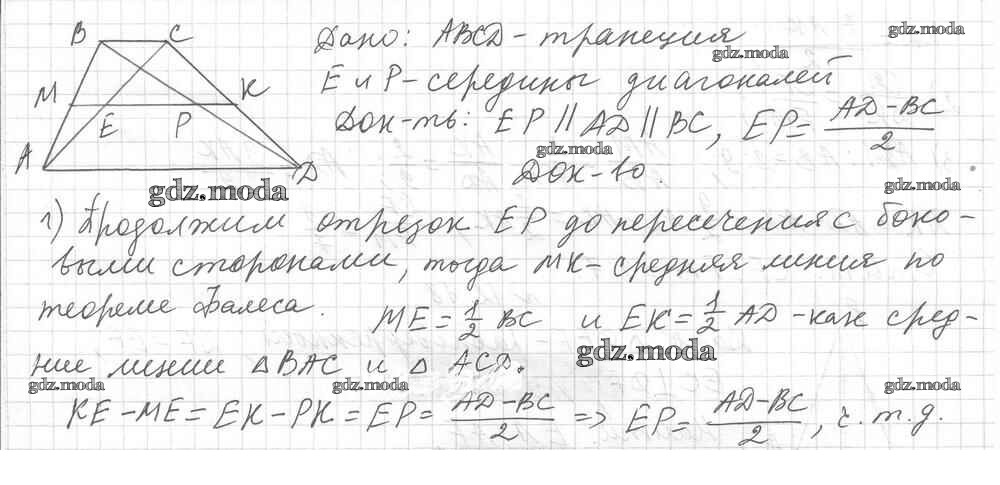 B C
M K
E P
A D
Дано: ABCD - трапеция
gdz.moda
gdz.moda
E и P - середины диагоналей
Док-ть: EP || AD || BC, EP = AD-BC / 2
gdz.moda
Док-во.
gdz.moda
gdz.moda
1) Продолжим отрезок EP до пересечения с боко-
выми сторонами, тогда MK - средняя линия по
теореме Фалеса. ME = 1/2 BC и EK = 1/2 AD - как сред-
ние линии △BAC и △ ACD.
gdz.moda
gdz.moda
gdz.moda
gdz.moda
KE - ME = EK - PK = EP = AD-BC / 2 => EP = AD-BC / 2, ч.т.д.